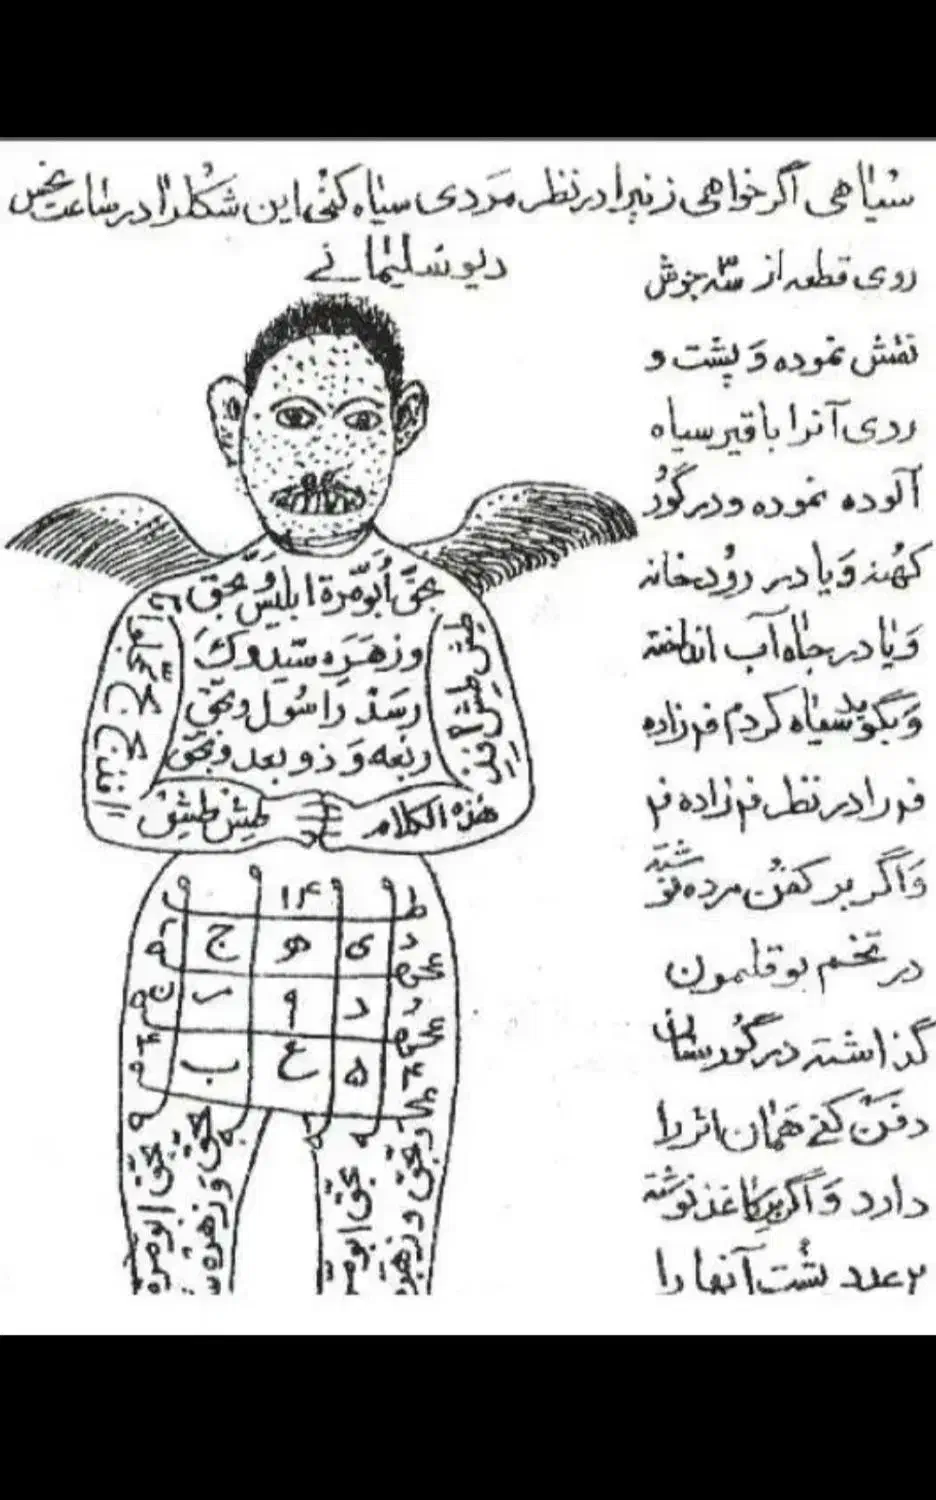 سیاهی اگر خواهی زنیرا در نظر مردی سیاه کنی این شکلرا در ساعت نحس
دیو سلیمانے
روی قطعه از سه جوش
نقش نموده وَ پشت و
روی آنرا با قیر سیاه
آلوده نموده و در گور
کهنه وَ یا در رودخانه
وَ یا در چاه آب انداخته
وَ بگوید سیاه کردم ف زاده
ف را در نظر ف زاده ف
وَ اگر بر کفن مرده نوشته
در تخم بوقلمون
گذاشته در گورستان
دفن کنے همان اثر را
دارد وَ اگر بر کاغذ نوشته
۲ عدد پشت آنها را
بحقَّ أبومُرَة ابلیس بحق
وزهَرَه سیدوک
رسد راسُول و بحق
ربعه وَ ذوبعد و بحق
هذه الکلام
طیش طیش
۱۴ ط
ج هو ی د
ر ۹ د
ب ع ۵
بحق ابومره
بحق وزهره
بحق ابومر
وبحق وزهره